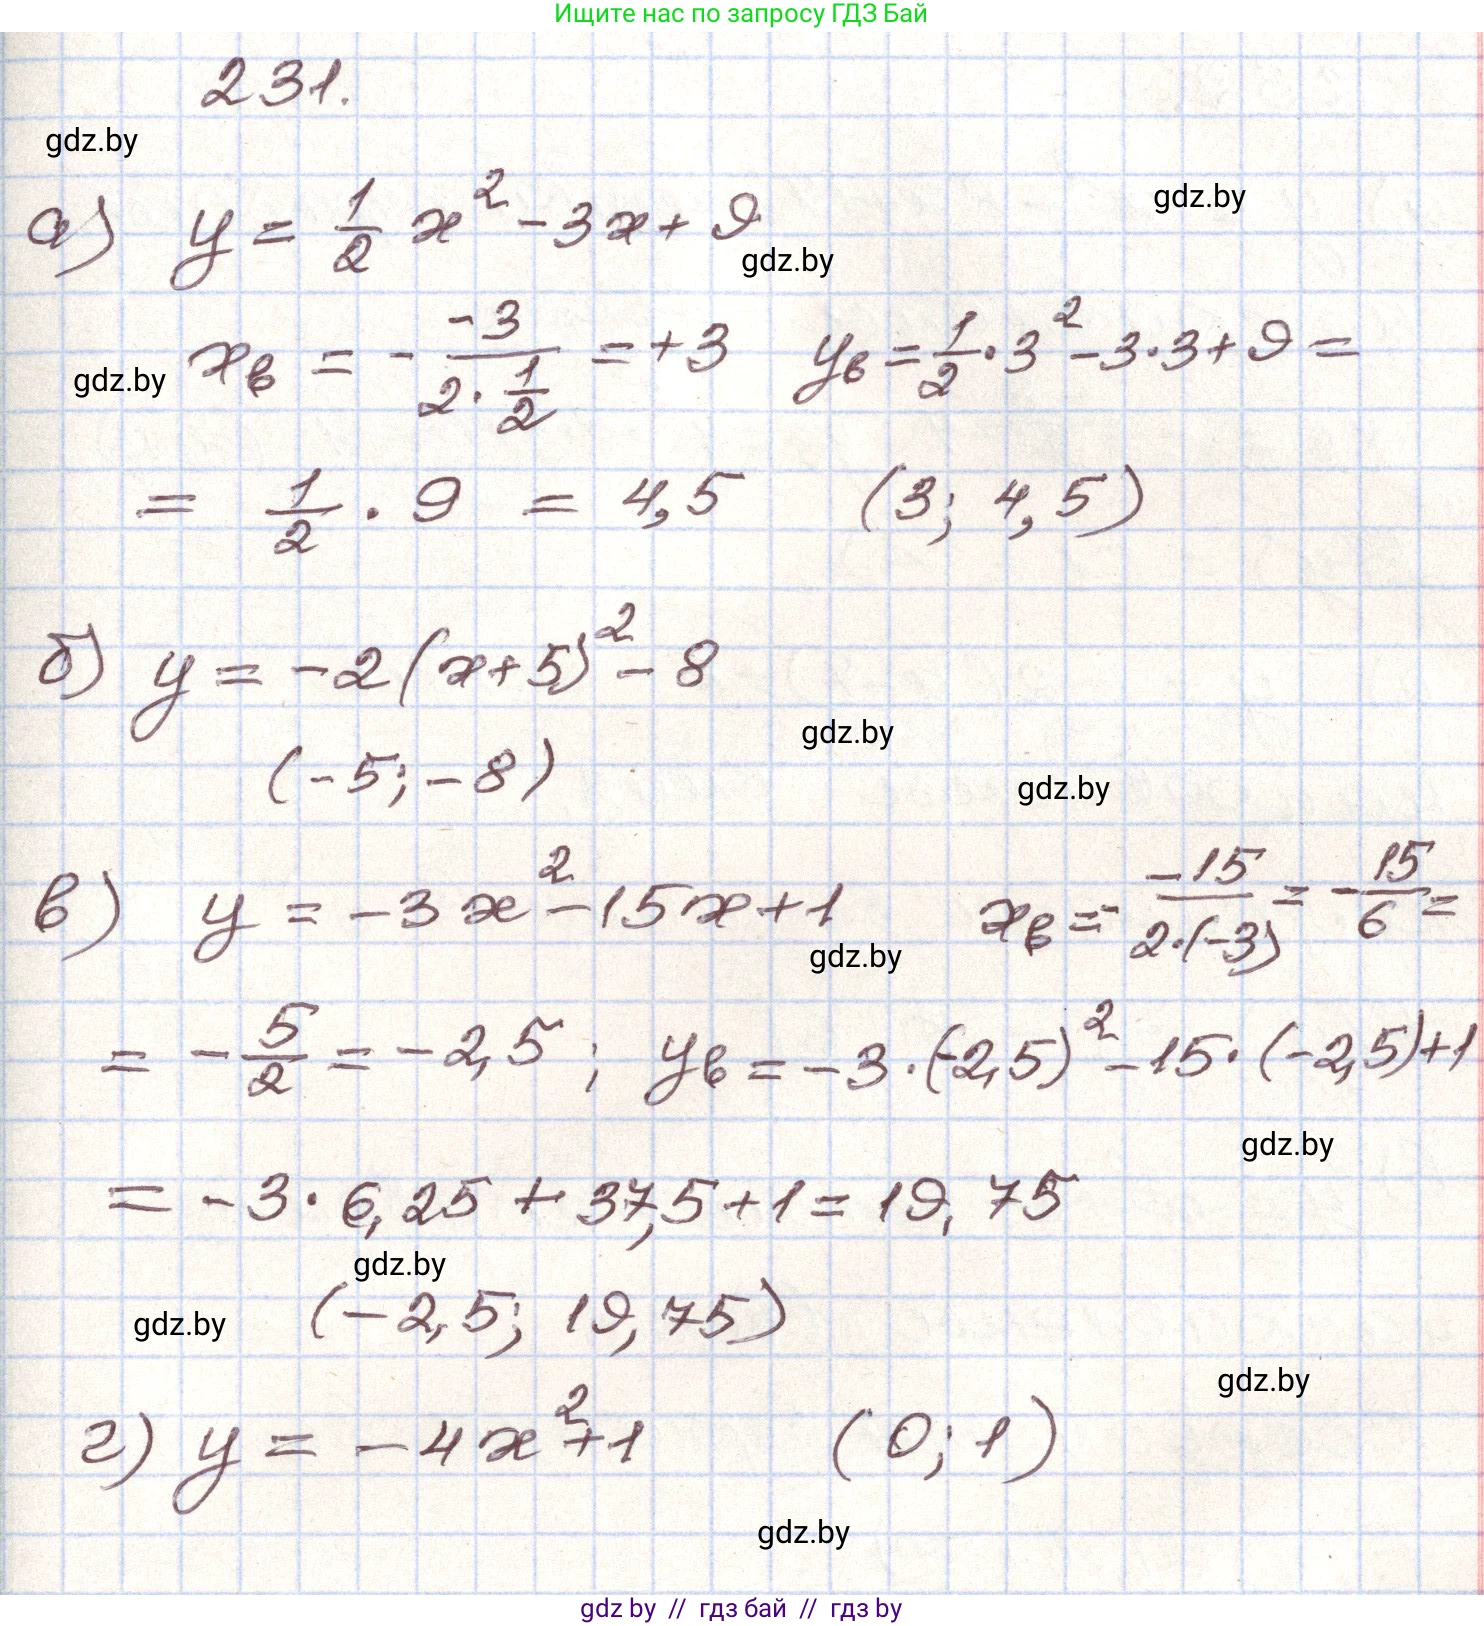 Ищите нас по запросу ГДЗ Бай
231.
gdz.by
gdz.by
а) y = 1/2 x² - 3x + 9
gdz.by
xв = - -3/(2 · 1/2) = +3 yв = 1/2 · 3² - 3 · 3 + 9 =
gdz.by
= 1/2 · 9 = 4,5 (3; 4,5)
б) y = -2(x+5)² - 8
gdz.by
(-5; -8)
gdz.by
в) y = -3x² - 15x + 1 xв = - -15/(2·(-3)) = - 15/6 =
gdz.by
= - 5/2 = -2,5 ; yв = -3 · (-2,5)² - 15 · (-2,5) + 1
gdz.by
= -3 · 6,25 + 37,5 + 1 = 19,75
gdz.by
gdz.by (-2,5; 19,75)
gdz.by
г) y = -4x² + 1 (0; 1)
gdz.by
gdz by // гдз бай // гдз by